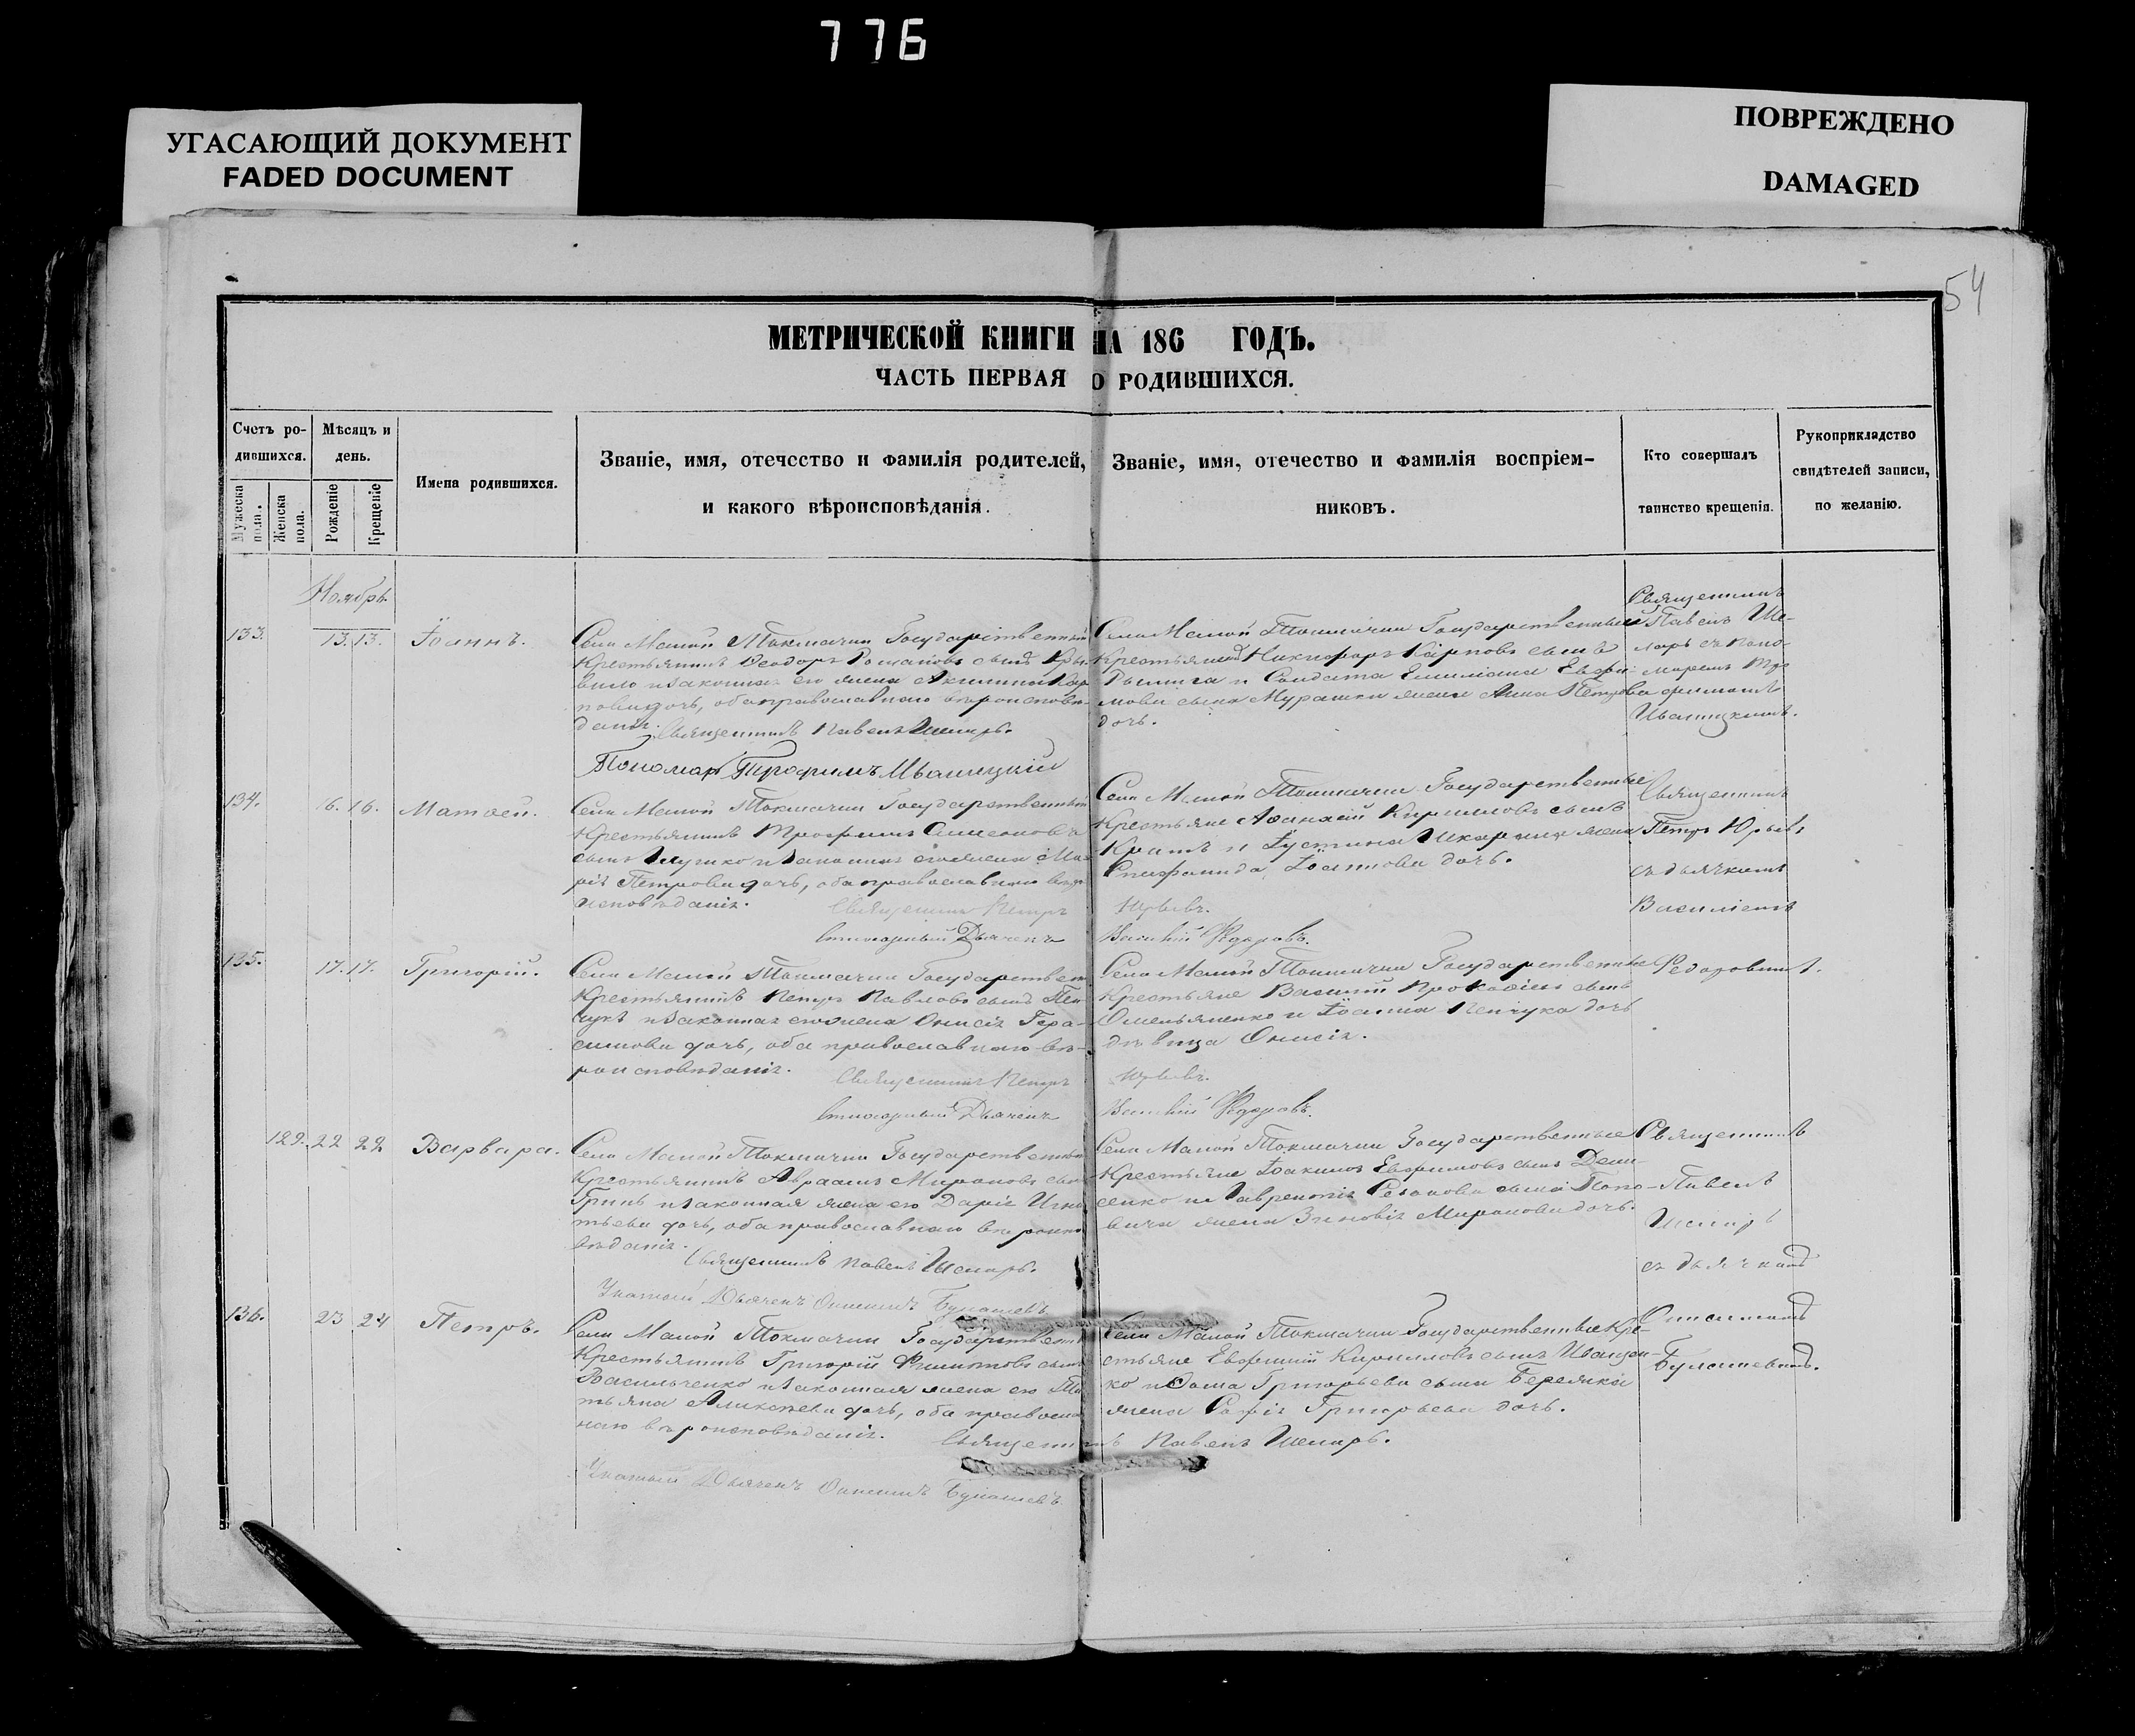 776
УГАСАЮЩИЙ ДОКУМЕНТ
FADED DOCUMENT
ПОВРЕЖДЕНО
DAMAGED
54
МЕТРИЧЕСКОЙ КНИГИ НА 186 ГОДЪ.
ЧАСТЬ ПЕРВАЯ О РОДИВШИХСЯ.
Счетъ ро-
дившихся.
Мужеска пола.
Женска пола.
Мѣсяцъ и
день.
Рожденіе
Крещеніе
Имена родившихся.
Званіе, имя, отечество и фамилія родителей,
и какого вѣроисповѣданія.
Званіе, имя, отечество и фамилія воспріем-
никовъ.
Кто совершалъ
таинство крещенія.
Рукоприкладство
свидѣтелей записи,
по желанію.
Ноябрь
133. 13. 13. Іоаннъ.
Села Малой Токмачки Государственный
Крестьянинъ Ѳеодоръ Романовъ сынъ
и законная его жена Акилина
дочь, оба православнаго вѣроисповѣ-
данія. Священникъ Павелъ Шемаръ.
Пономарь Трофимъ Иваницкій
Села Малой Токмачки Государственные
Крестьяне Никифоръ Карповъ сынъ
и Солдата Емиліана Евфи-
мова сына Мурашки жена Анна Петрова
дочь.
Священникъ
Павелъ Ше-
маръ съ поно-
маремъ Тро-
фимомъ
Иваницкимъ.
134. 16. 16. Матѳей.
Села Малой Токмачки Государственный
Крестьянинъ Трофимъ Симеоновъ
сынъ и законная его жена Ма-
рія Петрова дочь, оба православнаго вѣро-
исповѣданія. Священникъ Петръ Юрьевъ.
Дьячекъ Василій Ѳедоровъ.
Села Малой Токмачки Государственные
Крестьяне Аѳанасій Кирилловъ сынъ
и Іустина жена
Іоаннова дочь.
Священникъ
Петръ Юрьевъ
съ дьячкомъ
Василіемъ
Ѳедоровымъ.
135. 17. 17. Григорій.
Села Малой Токмачки Государствен
Крестьянинъ Петръ Павловъ сынъ
и законная его жена Онисія Гера-
симова дочь, оба православнаго вѣ-
роисповѣданія. Священникъ Петръ Юрьевъ.
Дьячекъ Василій Ѳедоровъ.
Села Малой Токмачки Государственные
Крестьяне Василій Прокофіевъ сынъ
Омельяненко и Іоанна Пенчука дочь
дѣвица Онисія.
129. 22 22 Варвара.
Села Малой Токмачки Государственный
Крестьянинъ Авраамъ Мироновъ сынъ
Гринь и законная жена его Дарія Игна
тьева дочь, оба православнаго вѣроиспо
вѣданія.
Священникъ Павелъ Шемаръ.
Дьячекъ Онисимъ
Села Малой Токмачки Государственные
Крестьяне Іоакимъ Евфимовъ сынъ Дени-
сенко и Лаврентія сына Попо-
вича жена Зиновія Миронова дочь.
Священникъ
Павелъ
Шемаръ
съ дьячкомъ
Онисимомъ
136. 23 24 Петръ.
Села Малой Токмачки Государствен
Крестьянинъ Григорій сынъ
Васильченко и законная жена его Та
тьяна Алексѣева дочь, оба правосла
наго вѣроисповѣданія. Священникъ Павелъ Шемаръ.
Дьячекъ Онисимъ
Села Малой Токмачки Государственные Кре-
стьяне Евфимій Кирилловъ сынъ Иващен-
ко и Ѳома Григорьева сына
жена Софія Григорьева дочь.